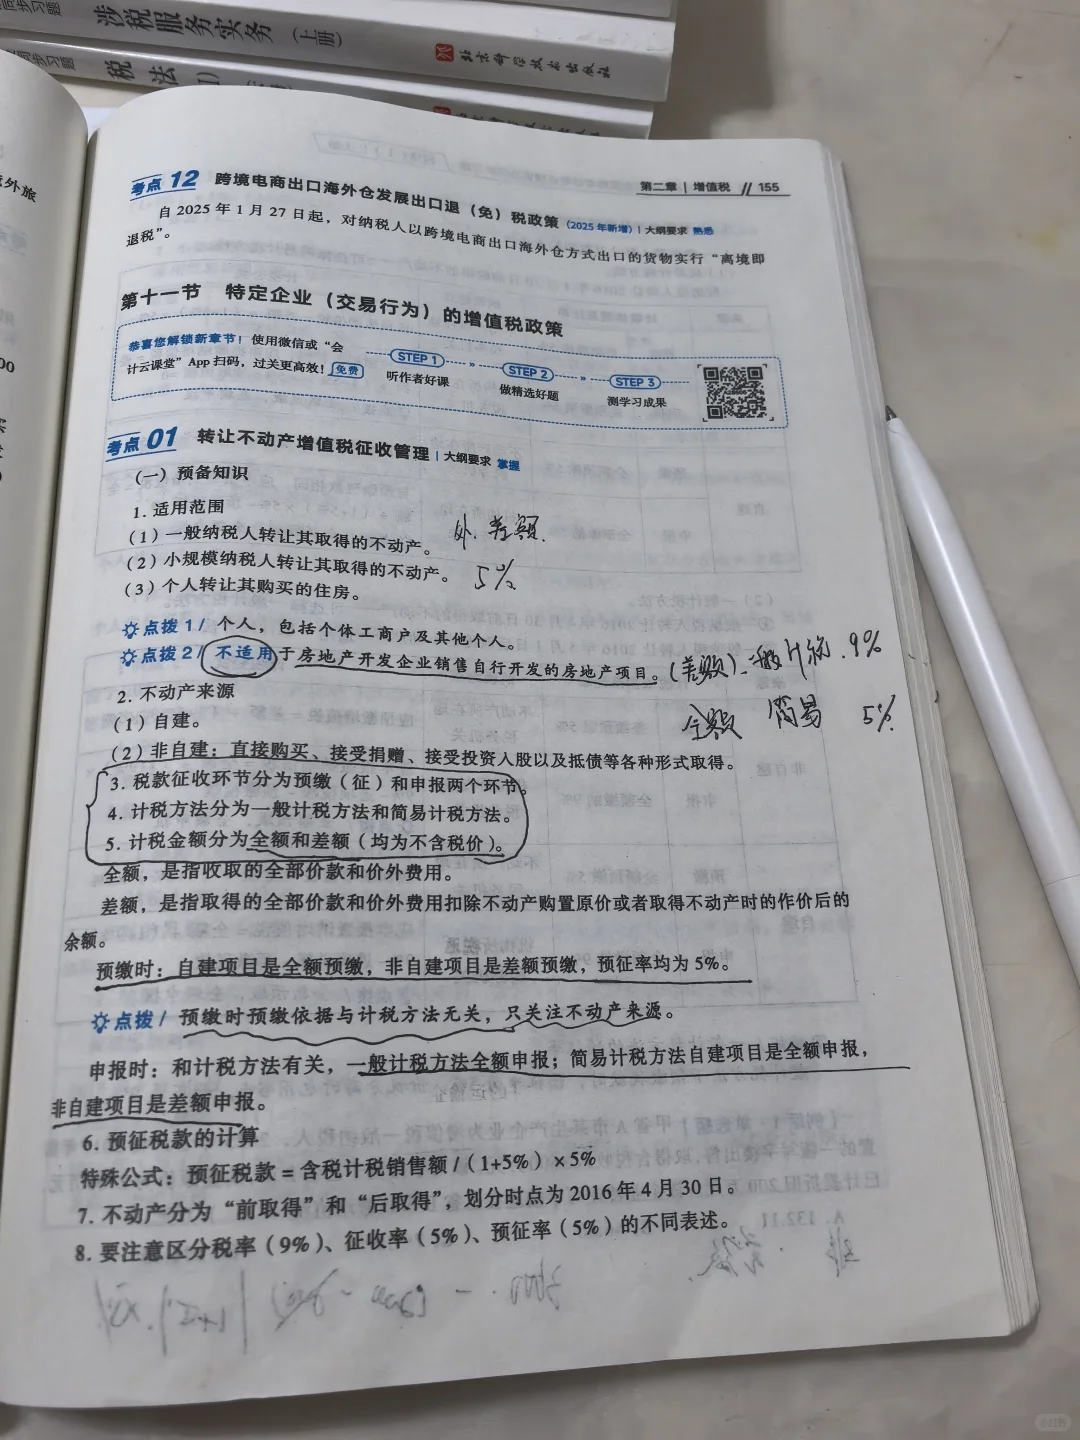 涉税服务实务（上册）
北京科学技术出版社
税法
同步习题
外旅
00
第二章 | 增值税 // 155
考点 12 跨境电商出口海外仓发展出口退（免）税政策（2025年新增）| 大纲要求 熟悉
自 2025 年 1 月 27 日起，对纳税人以跨境电商出口海外仓方式出口的货物实行“离境即
退税”。
第十一节 特定企业（交易行为）的增值税政策
恭喜您解锁新章节！使用微信或“会
计云课堂”App 扫码，过关更高效！免费
STEP 1 » STEP 2 » STEP 3
听作者好课 做精选好题 测学习成果
考点 01 转让不动产增值税征收管理 | 大纲要求 掌握
（一）预备知识
1. 适用范围
（1）一般纳税人转让其取得的不动产。
外. 差额.
（2）小规模纳税人转让其取得的不动产。
5%
（3）个人转让其购买的住房。
点拨 1/ 个人，包括个体工商户及其他个人。
点拨 2/ 不适用于房地产开发企业销售自行开发的房地产项目。
(差额). 一般计税. 9%
2. 不动产来源
全额 简易 5%
（1）自建。
（2）非自建：直接购买、接受捐赠、接受投资入股以及抵债等各种形式取得。
3. 税款征收环节分为预缴（征）和申报两个环节。
4. 计税方法分为一般计税方法和简易计税方法。
5. 计税金额分为全额和差额（均为不含税价）。
全额，是指收取的全部价款和价外费用。
差额，是指取得的全部价款和价外费用扣除不动产购置原价或者取得不动产时的作价后的
余额。
预缴时：自建项目是全额预缴，非自建项目是差额预缴，预征率均为 5%。
点拨/ 预缴时预缴依据与计税方法无关，只关注不动产来源。
申报时：和计税方法有关，一般计税方法全额申报；简易计税方法自建项目是全额申报，
非自建项目是差额申报。
6. 预征税款的计算
特殊公式：预征税款 = 含税计税销售额 /（1+5%）×5%
7. 不动产分为“前取得”和“后取得”，划分时点为 2016 年 4 月 30 日。
8. 要注意区分税率（9%）、征收率（5%）、预征率（5%）的不同表述。